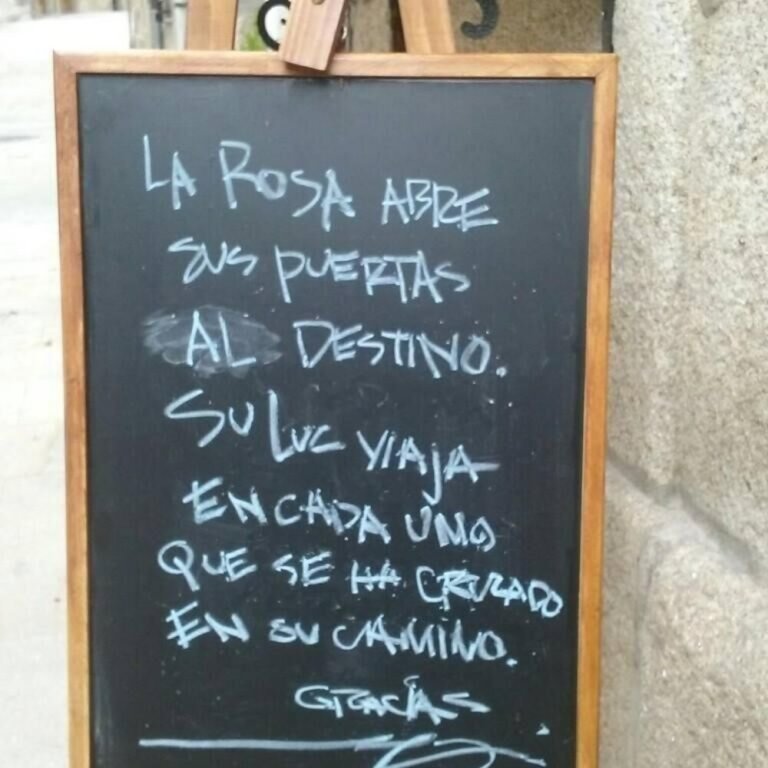 LA ROSA ABRE
SUS PUERTAS
AL DESTINO.
SU LUC VIAJA
EN CADA UNO
QUE SE HA CRUZADO
EN SU CAMINO.
GRACIAS